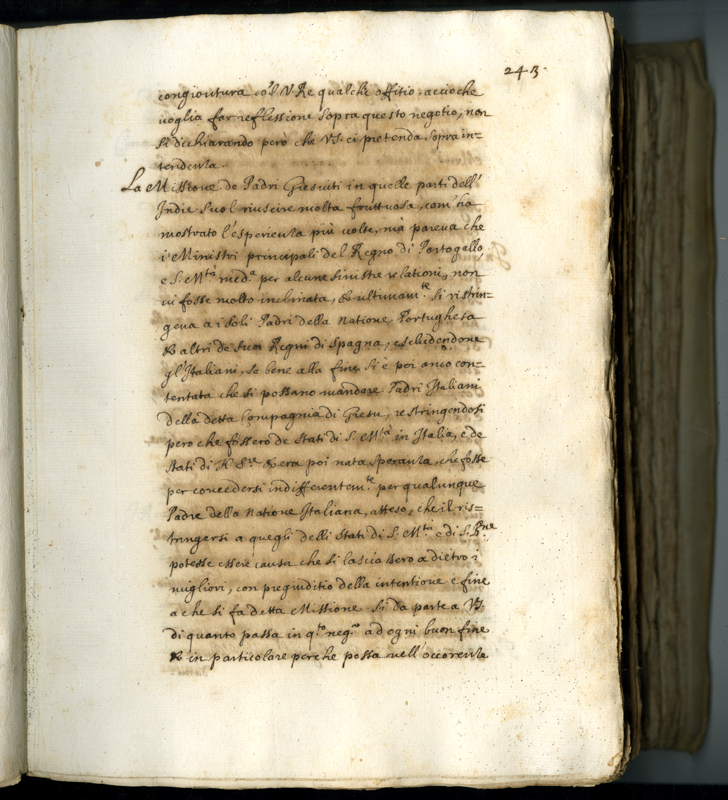 243.
congiontura co'l V. Re qualche offitio, accioche
voglia far reflessione sopra questo negotio, non
si dichiarando però che VS. ci pretenda soprain=
tendenza.
La Missione de Padri Giesuiti in quelle parti dell'
Indie suol riuscire molto fruttuosa, com' ha
mostrato l'esperienza più volte, mà pareva che
i Ministri principali del Regno di Portogello,
e S. Mtà med.a per alcune sinistre relationi, non
vi fosse molto inclinata, & ultimam.te si ristrin=
geva a i soli Padri della natione Portughesa
& altri de suoi Regni di Spagna, escludendone
gl'Italiani, se bene alla fine si è poi anco con=
tentata che si possano mandare Padri Italiani
della detta Compagnia di Giesu, restringendosi
pero che fossero de Stati di S. Mtà in Italia, e de
stati di N. S.re & era poi nata speranza, che fosse
per concedersi indifferentem.te per qualunque
Padre della natione Italiana, atteso, che il ris=
tringersi a quegli delli Stati di S. Mtà e di S. B.ne
potesse essere causa che si lasciassero a dietro i
migliori, con pregiuditio della intentione e fine
a che si fa detta Missione. Si da parte a VS.
di quanto passa in q.to neg.o ad ogni buon fine
& in particolare perche possa nell' occorenze